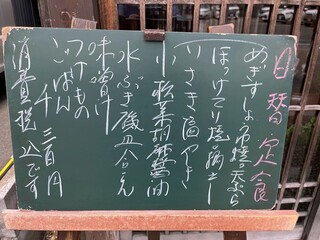 日替定食
めぎすしょうが焼 天ぷら
ほっけてり焼
いさき塩やき
小松菜胡麻醤油
水ぶき磯皿合え
味噌汁
つけもの
ごはん
千三百円
消費税込です